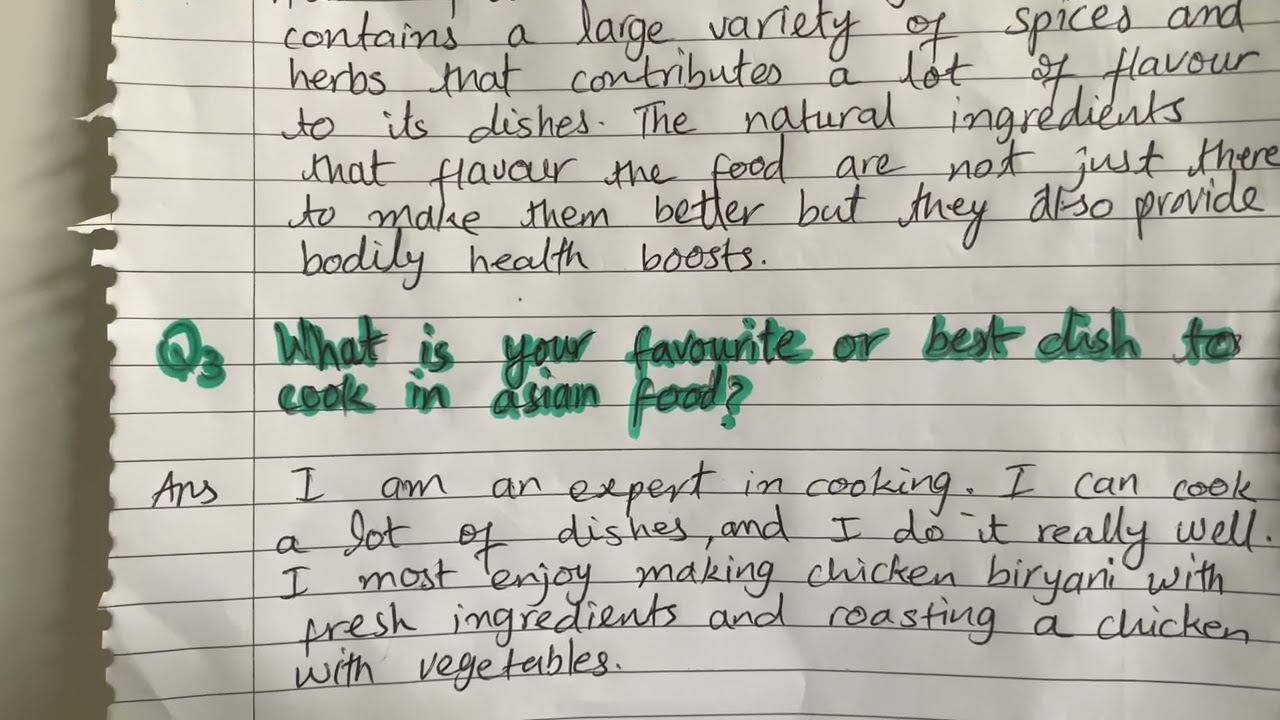 contains a large variety of spices and
herbs that contributes a lot of flavour
to its dishes. The natural ingredients
that flavour the food are not just there
to make them better but they also provide
bodily health boosts.
Q3 What is your favourite or best dish to
cook in asian food?
Ans I am an expert in cooking. I can cook
a lot of dishes, and I do it really well.
I most enjoy making chicken biryani with
fresh ingredients and roasting a chicken
with vegetables.